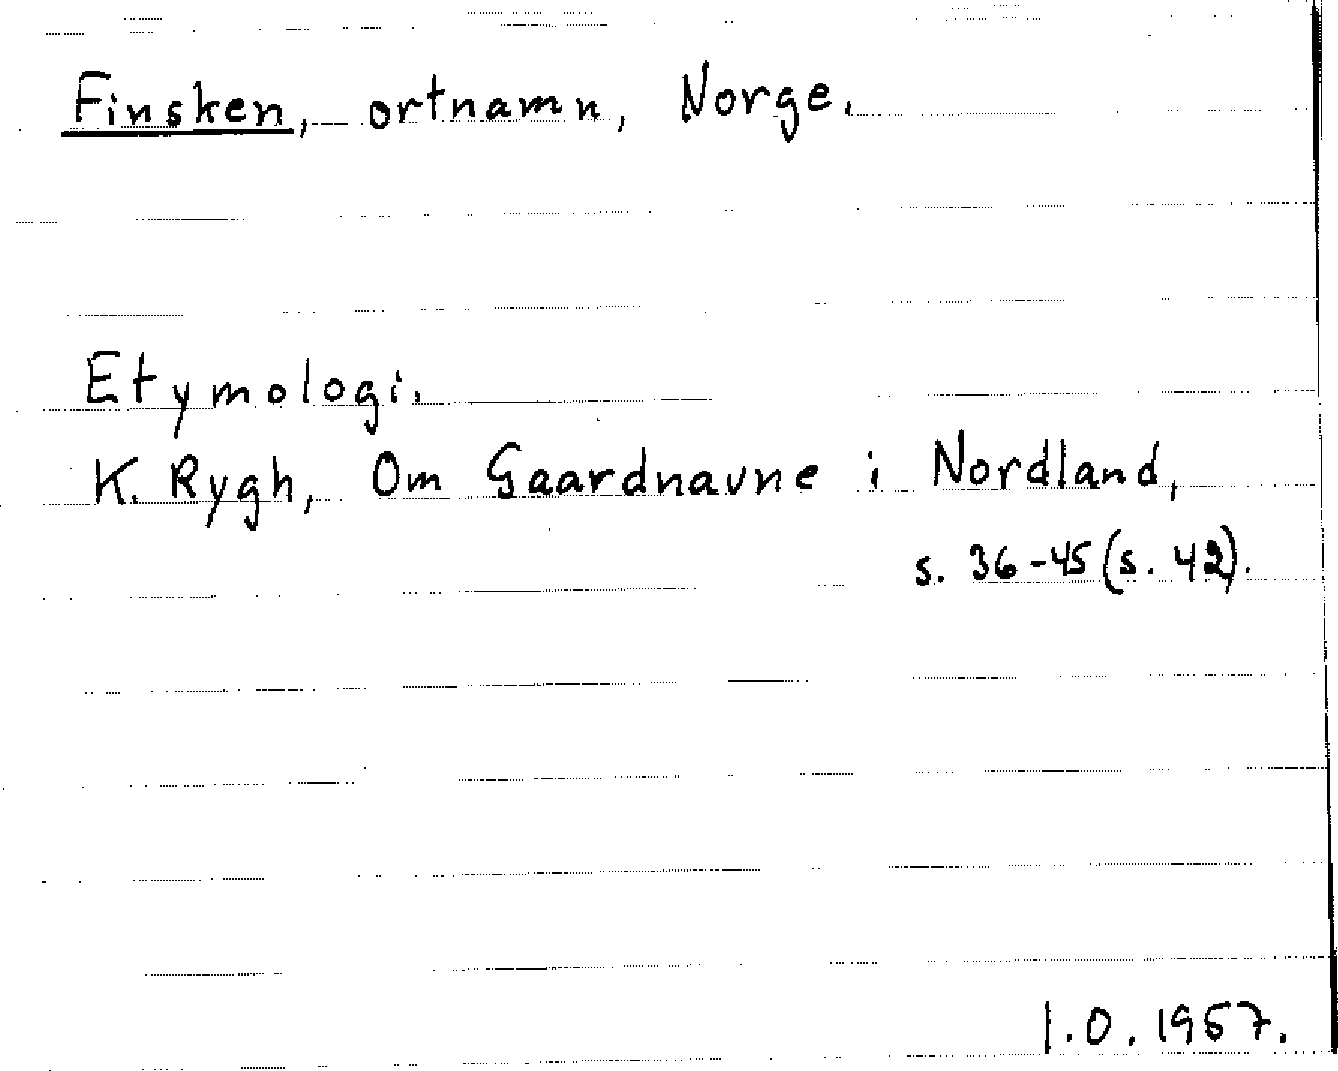 Finsken, ortnamn, Norge.
Etymologi.
K. Rygh, Om Gaardnavne i Nordland,
s. 36-45 (s. 42).
I.O. 1957.